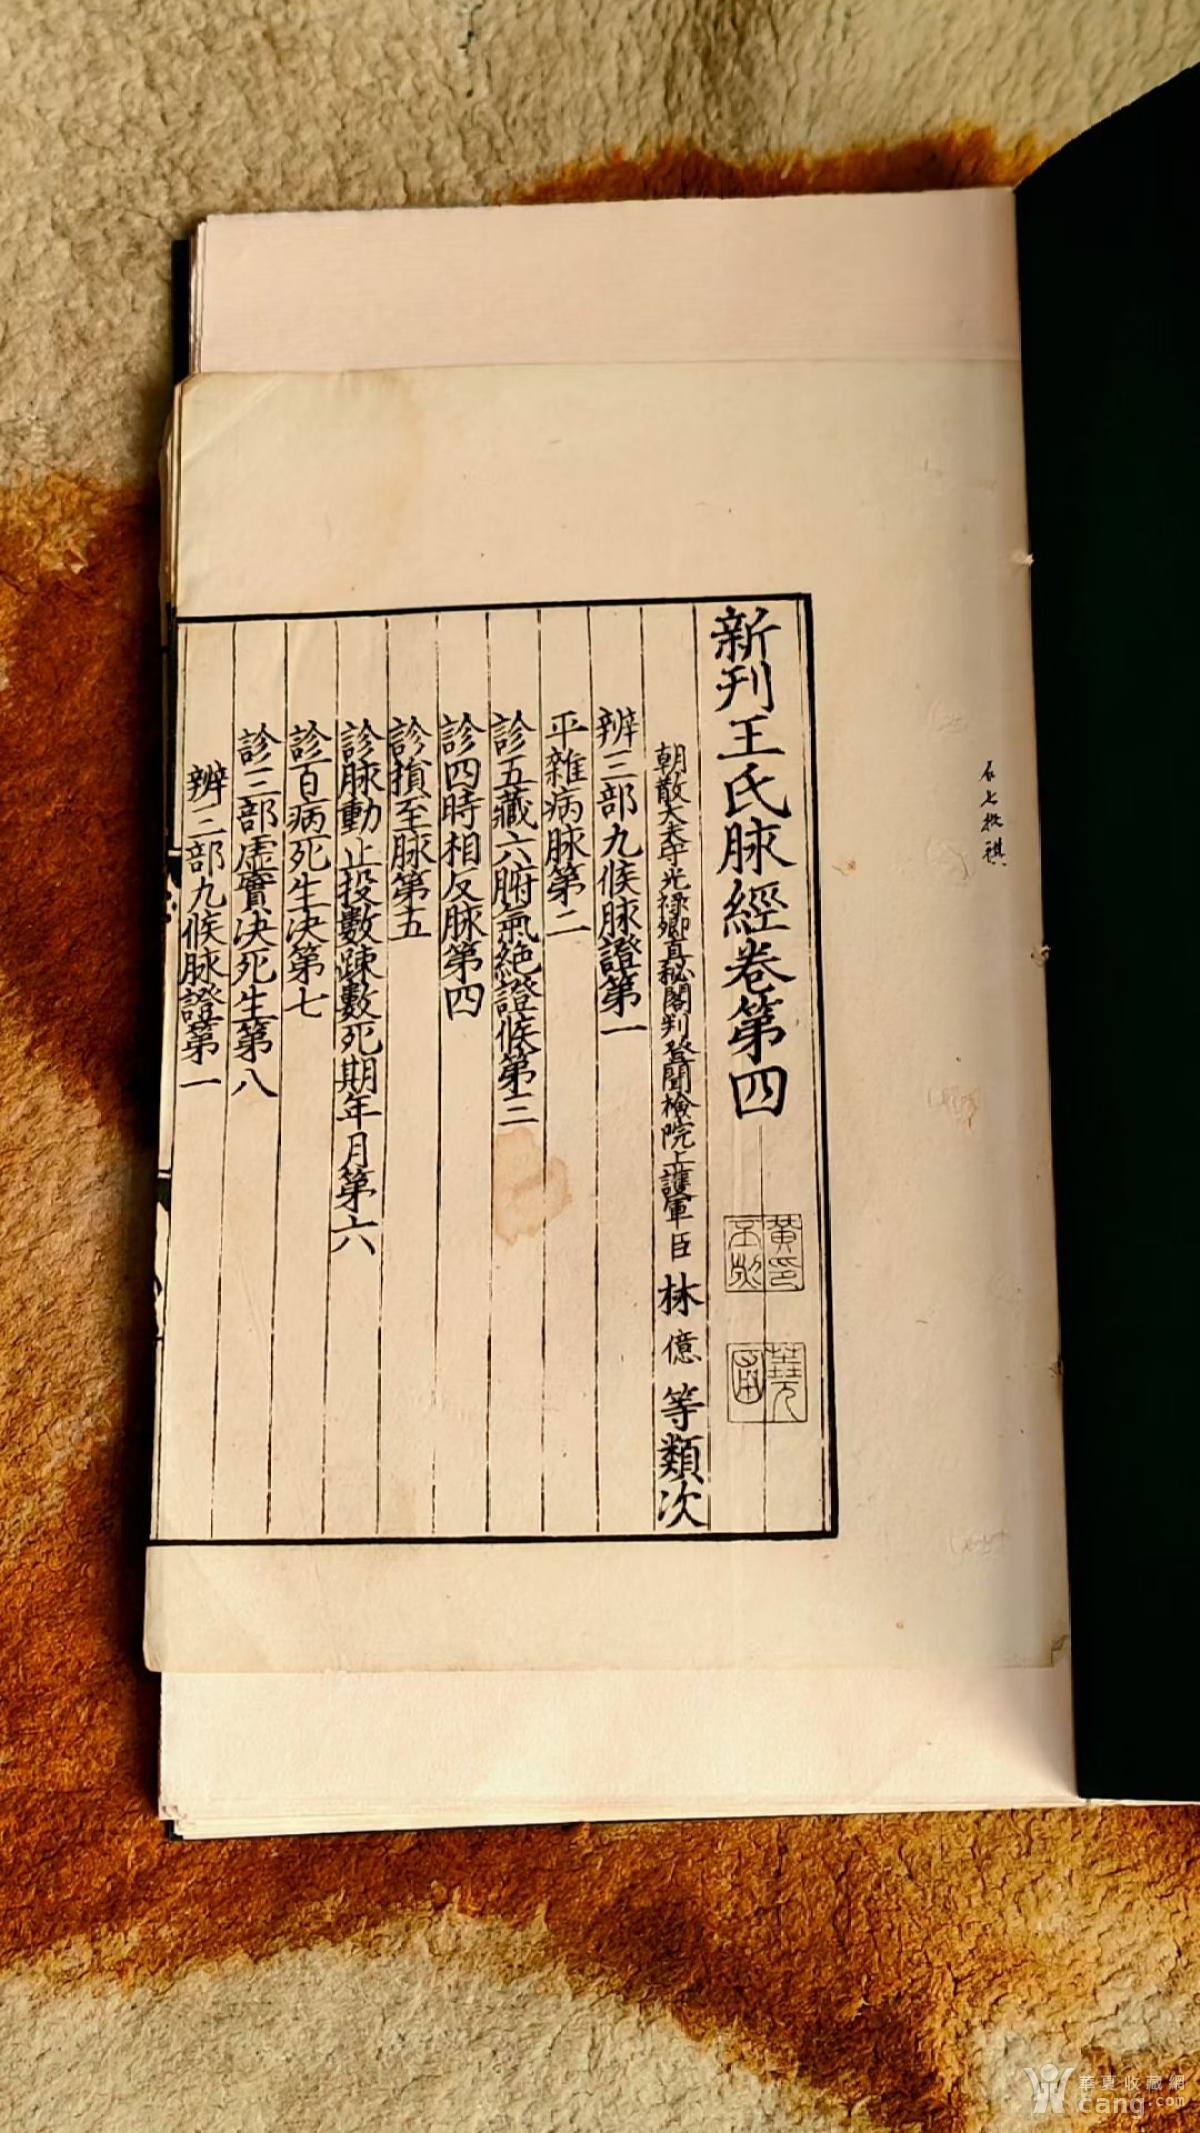 新刊王氏脉經卷第四
朝散大夫守光禄卿直秘閣判登聞檢院上護軍臣林億等類次
辨三部九候脉證第一
平雜病脉第二
診五藏六腑氣絶證候第三
診四時相反脉第四
診損至脉第五
診脉動止投數踈數死期年月第六
診百病死生决第七
診三部虚實决死生第八
辨三部九候脉證第一
華夏收藏網
cang.com